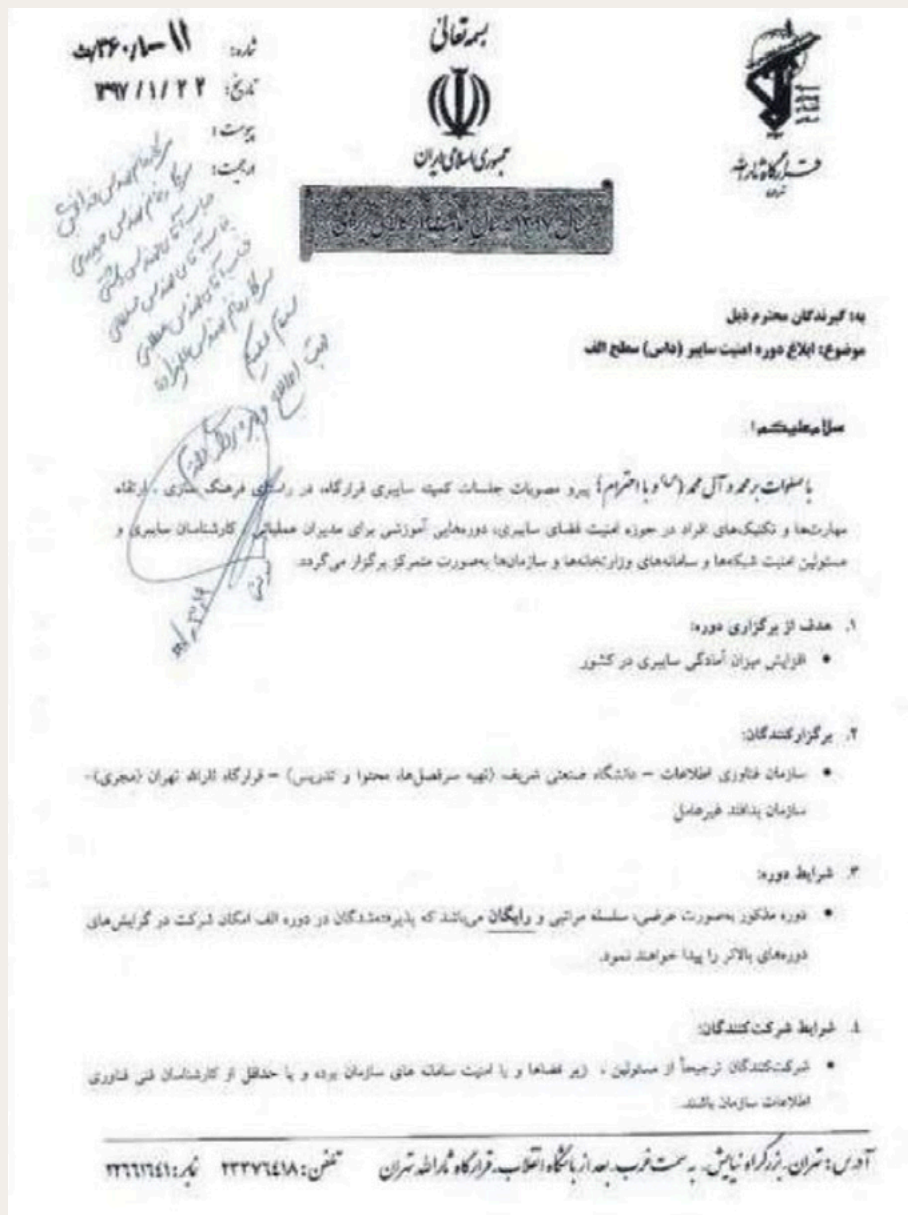 بسمه تعالی
جمهوری اسلامی ایران
قرارگاه ثارالله
تهران
شماره:
تاریخ: ۱۳۹۷/۱/۲۲
پیوست:
به: گیرندگان محترم ذیل
موضوع: ابلاغ دوره امنیت سایبر (داص) سطح الف
سلام‌علیکم؛
با صلوات بر محمد و آل محمد (ص) و با احترام؛ پیرو مصوبات جلسات کمیته سایبری قرارگاه، در راستای فرهنگ سازی ، ارتقاء
مهارت‌ها و تکنیک‌های افراد در حوزه امنیت فضای سایبری، دوره‌هایی آموزشی برای مدیران عملیاتی، کارشناسان سایبری و
مسئولین امنیت شبکه‌ها و سامانه‌های وزارتخانه‌ها و سازمان‌ها به‌صورت متمرکز برگزار می‌گردد.
۱. هدف از برگزاری دوره:
• افزایش میزان آمادگی سایبری در کشور
۲. برگزارکنندگان:
• سازمان فناوری اطلاعات – دانشگاه صنعتی شریف (تهیه سرفصل‌ها، محتوا و تدریس) – قرارگاه ثارالله تهران (مجری)-
سازمان پدافند غیرعامل
۳. شرایط دوره:
• دوره مذکور به‌صورت عرضی، سلسله مراتبی و رایگان می‌باشد که پذیرفته‌شدگان در دوره الف امکان شرکت در گرایش‌های
دوره‌های بالاتر را پیدا خواهند نمود.
٤. شرایط شرکت‌کنندگان:
• شرکت‌کنندگان ترجیحاً از مسئولین ، زیر فضاها و یا امنیت سامانه های سازمان بوده و یا حداقل از کارشناسان فنی فناوری
اطلاعات سازمان باشند.
آدرس: تهران. بزرگراه نیایش. به سمت غرب. بعد از باشگاه انقلاب. قرارگاه ثارالله تهران تلفن: ۲۳۳۷٦٤۱۸ نمابر: ۲۲٦٦۱٦٤۱